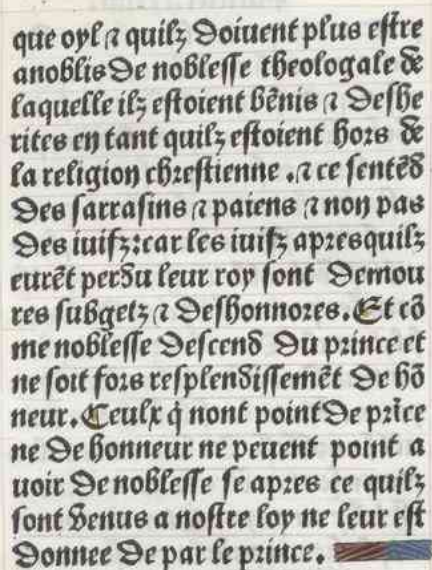 que oyl ⁊ quilz doiuent plus estre
anoblis de noblesse theologale de
laquelle ilz estoient bẽnis ⁊ deshe
rites en tant quilz estoient hors de
la religion chrestienne .⁊ ce sentẽd
des sarrasins ⁊ paiens ⁊ non pas
des iuifz:car les iuifz apresquilz
eurẽt perdu leur roy sont demou
res subgetz ⁊ deshonnores. Et cõ
me noblesse descend du prince et
ne soit fors resplendissemẽt de hõ
neur. Ceulx q̇ nont point de prĩce
ne de honneur ne peuent point a
uoir de noblesse se apres ce quilz
sont venus a nostre loy ne leur est
donnee de par le prince.